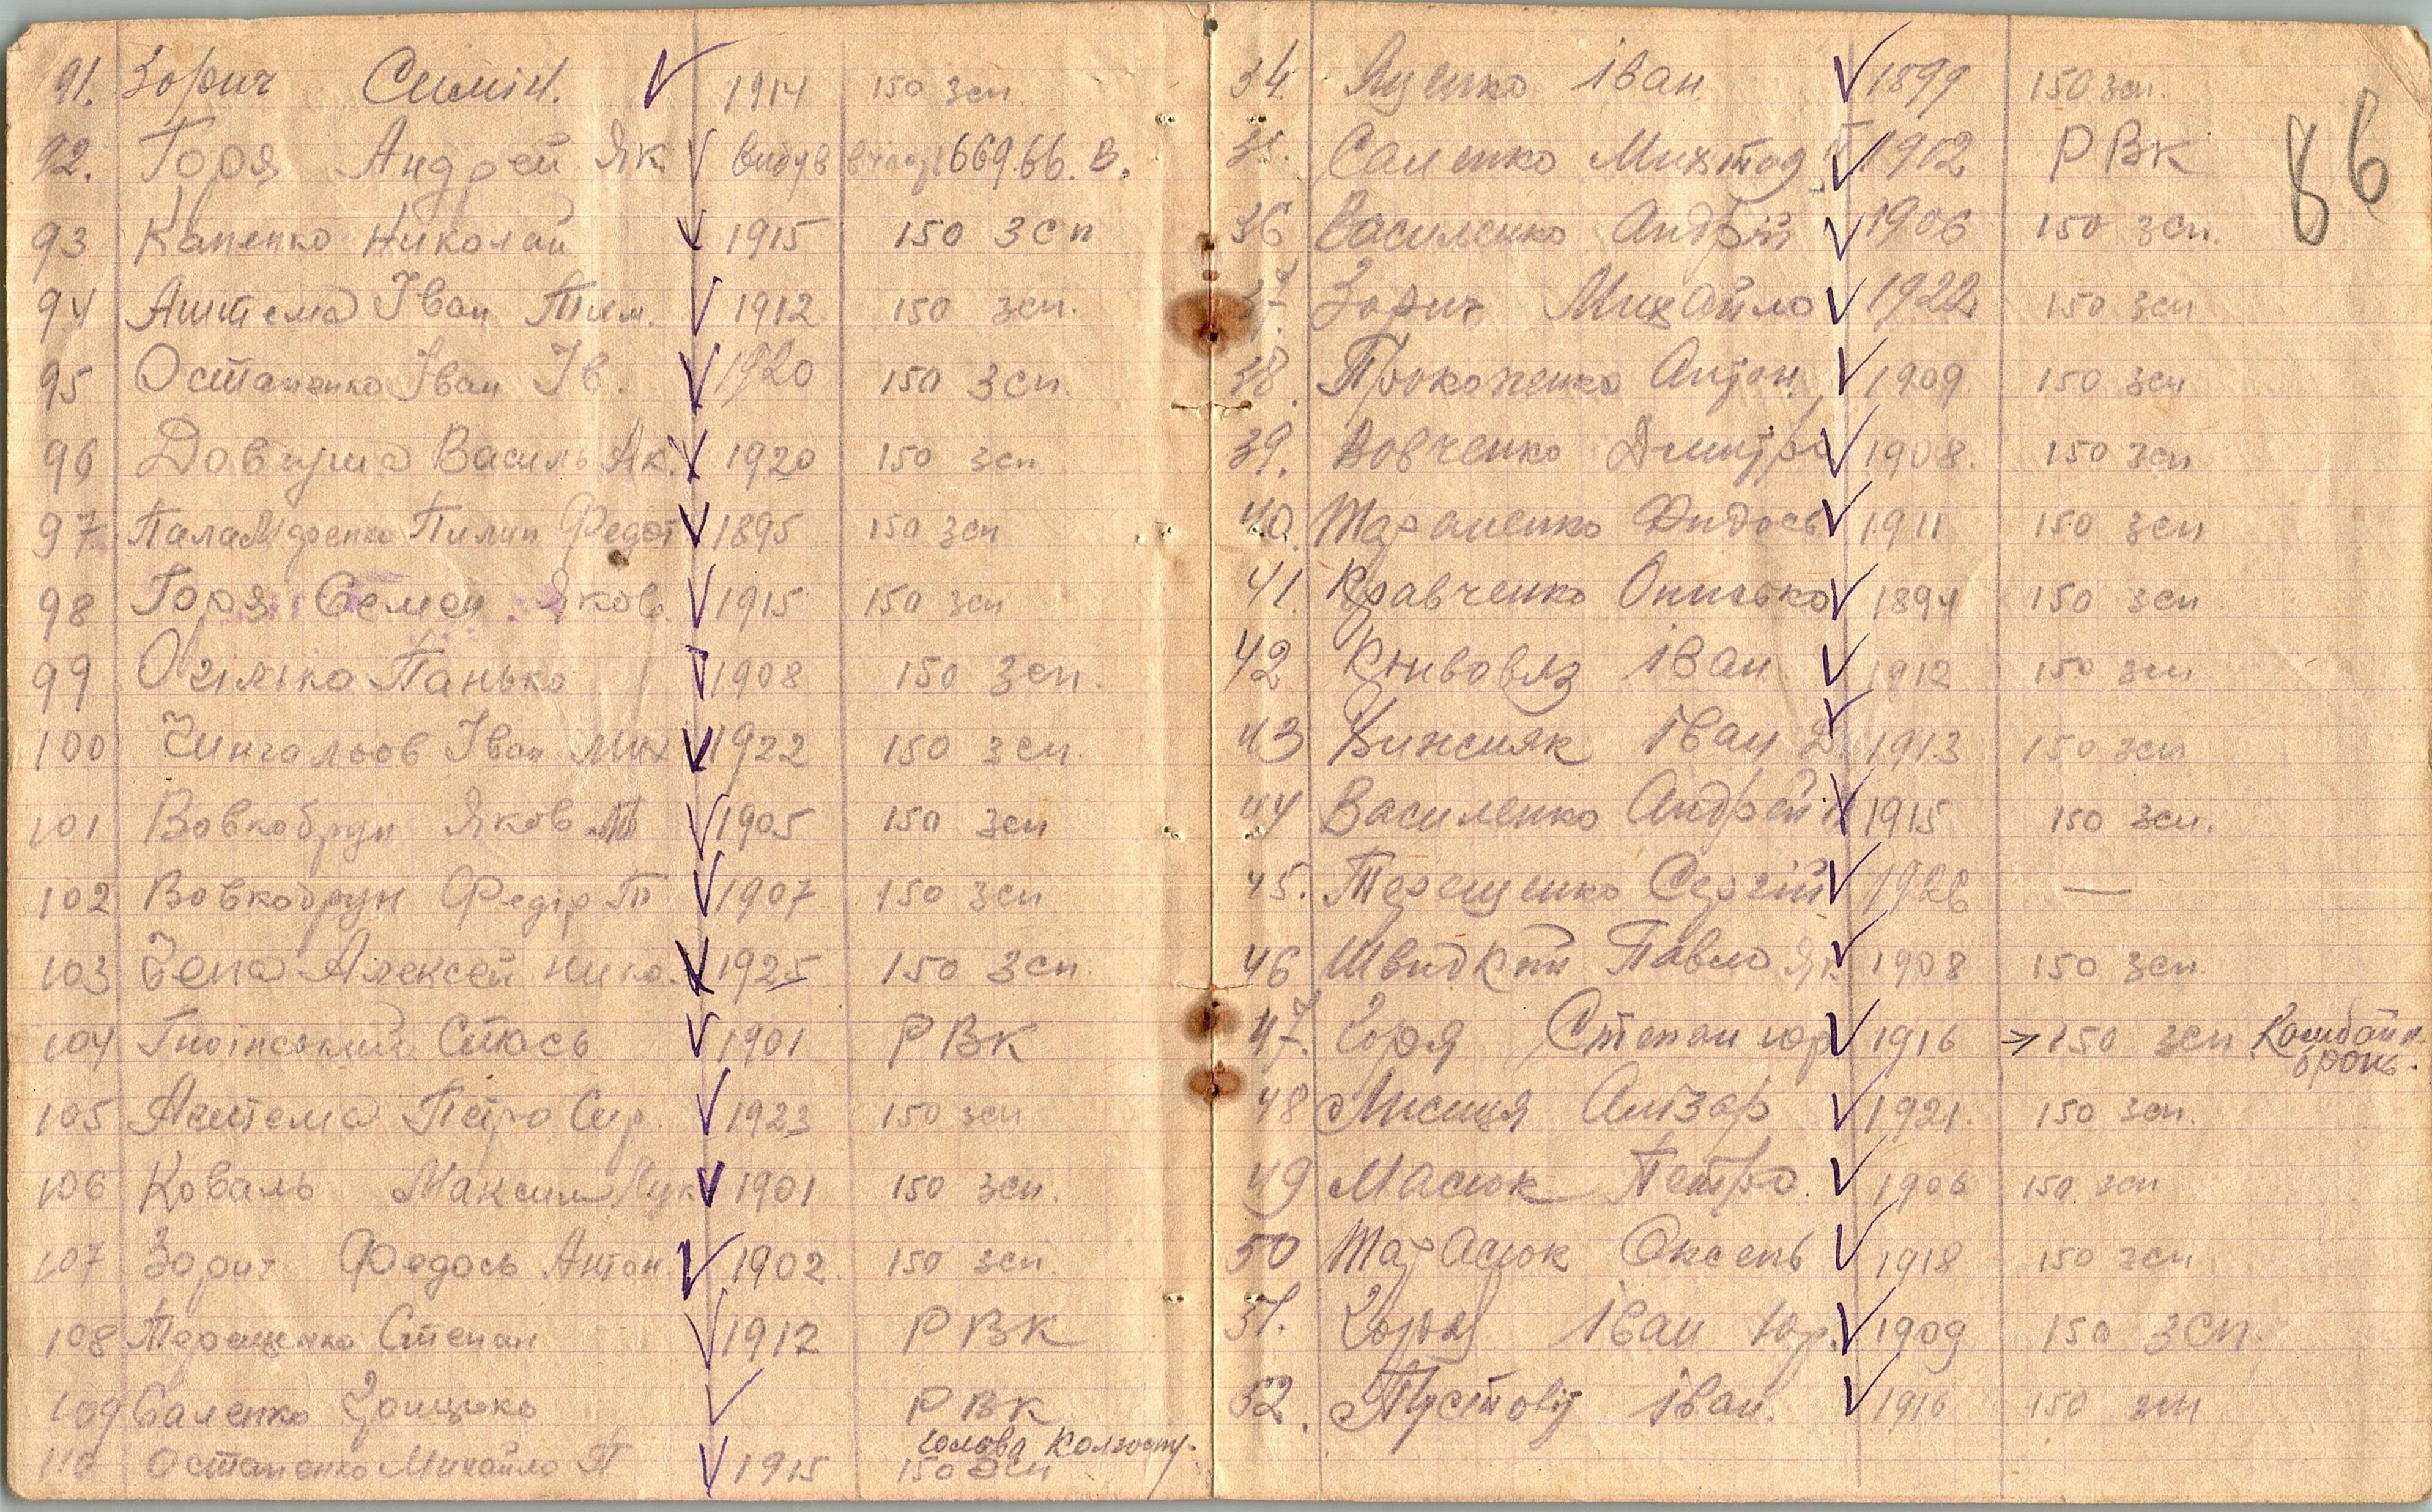 91. Зорич Симін. 1914 150 зсп
92. Горя Андрей Як. вибув 669.66. В.
93 Капенко Николай 1915 150 зсп
94 Аштема Іван Тим. 1912 150 зсп.
95 Остапенко Іван Ів. 1920 150 зсп.
96 Довгуша Василь Як. 1920 150 зсп
97 Паламаренко Пилип Федот 1895 150 зсп
98 Горя Семен Яков. 1915 150 зсп
99 Панько 1908 150 зсп.
100 Чингальов Іван Мих 1922 150 зсп.
101 Вовкобрун Яков Т 1905 150 зсп
102 Вовкобрун Федір П 1907 150 зсп
103 Чепа Алексей Нико. 1925 150 зсп.
104 Стась 1901 РВК
105 Аштема Петро Сир. 1923 150 зсп
106 Коваль Максим Лук 1901 150 зсп.
107 Зорич Федось Антон. 1902. 150 зсп.
108 Терещенко Степан 1912 РВК
109 Саленко Грицько РВК
голова колгоспу.
110 Остапенко Михайло П 1915 150 зсп
86
34. Яценко Іван 1899 150 зсп.
35. Саленко 1912 РВК
36 Василенко Андрій 1906 150 зсп.
37. Зорич Михайло 1922 150 зсп
38. Прокопенко Антон 1909. 150 зсп
39. Вовченко Дмитро 1908. 150 зсп
40. Тараненко Федось 1911 150 зсп
41. Кравченко Онисько 1894 150 зсп
42 Кривовяз Іван 1912 150 зсп
43 Іван Д. 1913 150 зсп
44 Василенко Андрей 1915 150 зсп.
45. Терещенко Сергій 1926 —
46 Швидкий Павло Як 1908 150 зсп
47. Горя Степан Юр 1916 → 150 зсп Комбайн.
бронь.
48 Лисиця Олізар 1921. 150 зсп.
49 Масюк Петро. 1906 150 зсп
50 Тарасюк Оксень 1918 150 зсп
51. Горя Іван Юр. 1909 150 зсп.
52. Пустовіт Іван. 1916 150 зсп